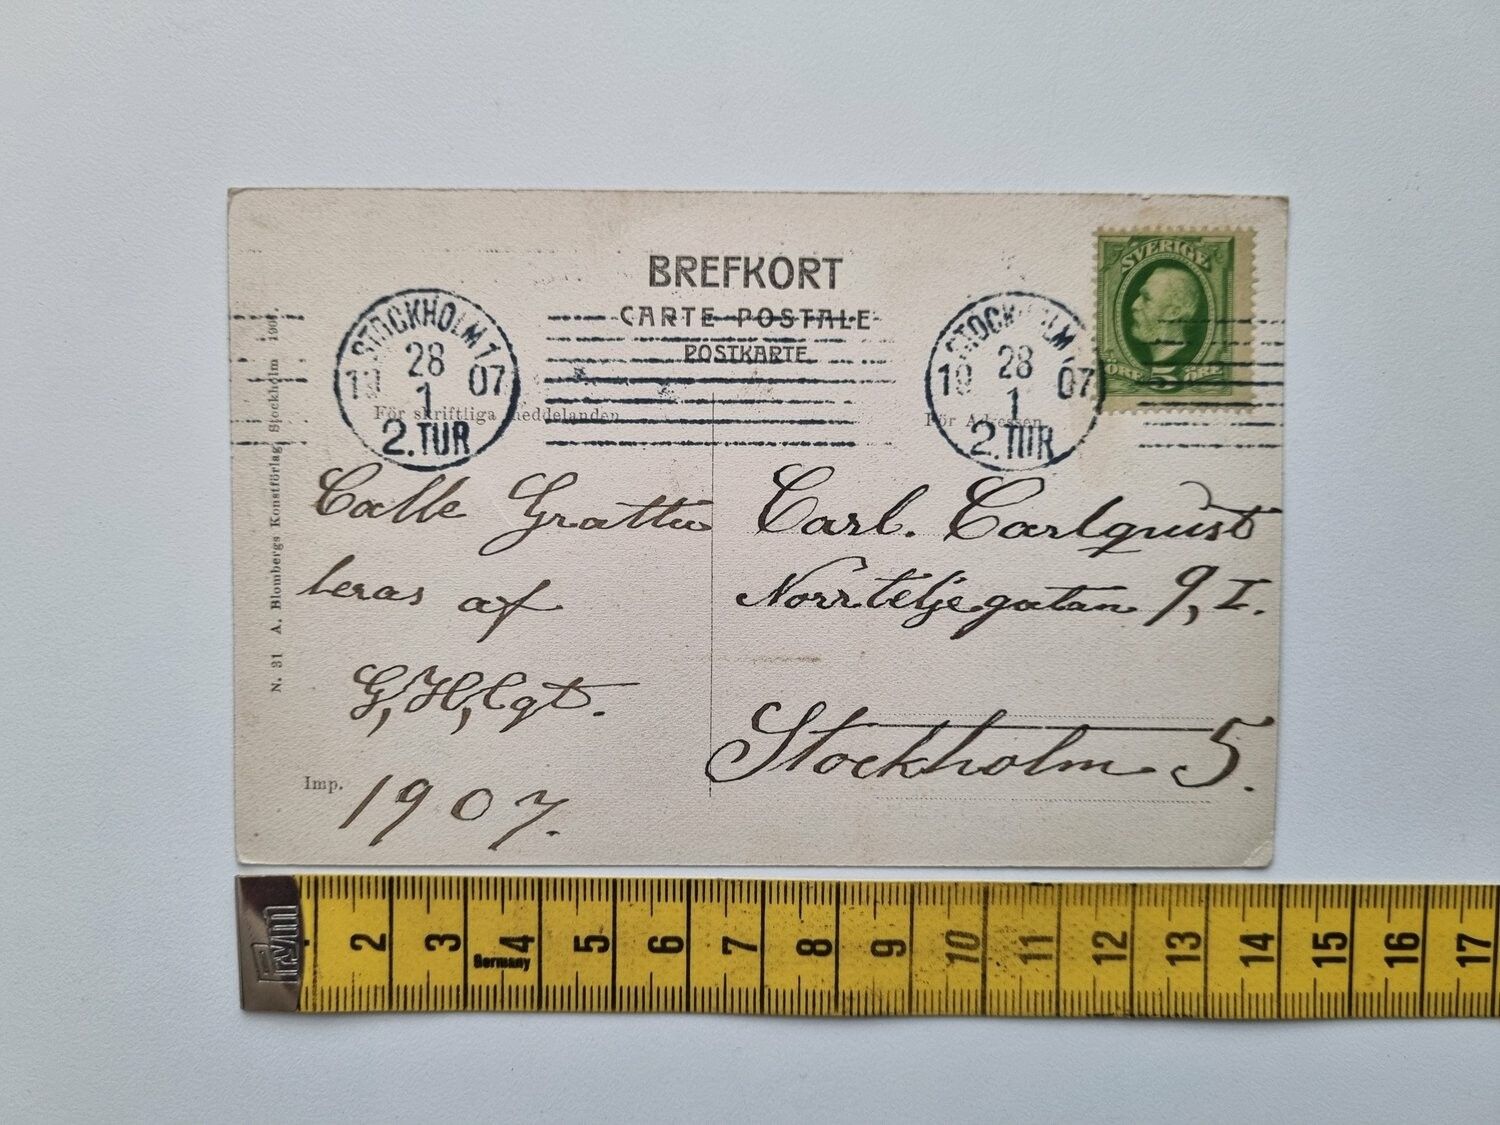 BREFKORT
CARTE POSTALE
POSTKARTE
STOCKHOLM 1
28
19 1 07
2.TUR
STOCKHOLM
28
19 1 07
2.TUR
SVERIGE
ÖRE 5 ÖRE
För skriftliga meddelanden
För Adressen
Calle Grattu
leras af
G, H, Cqt.
1907.
Carl. Carlquist
Norrteljegatan 9, I.
Stockholm 5.
N. 31 A. Blombergs Konstförlag, Stockholm
Imp.
2 3 4 5 6 7 8 9 10 11 12 13 14 15 16 17
Germany